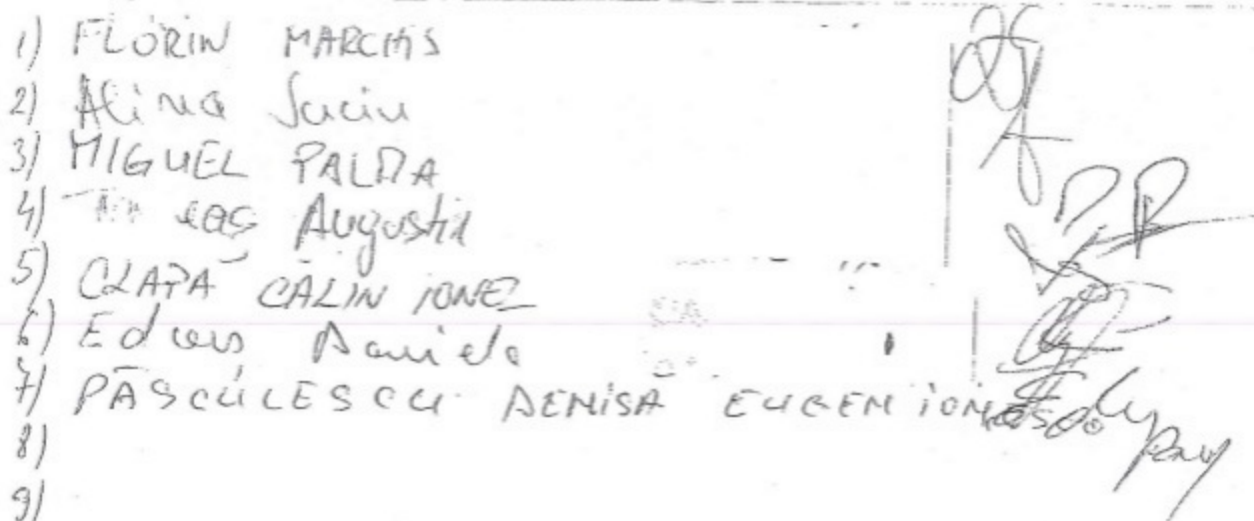 1) FLORIN MARCHIS
2) Alina Suciu
3) MIGUEL PALMA
4) Augustin
5) CLAPA CALIN IONEL
6) Daniela
7) PASCULESCU DENISA EUGEN
8)
9)